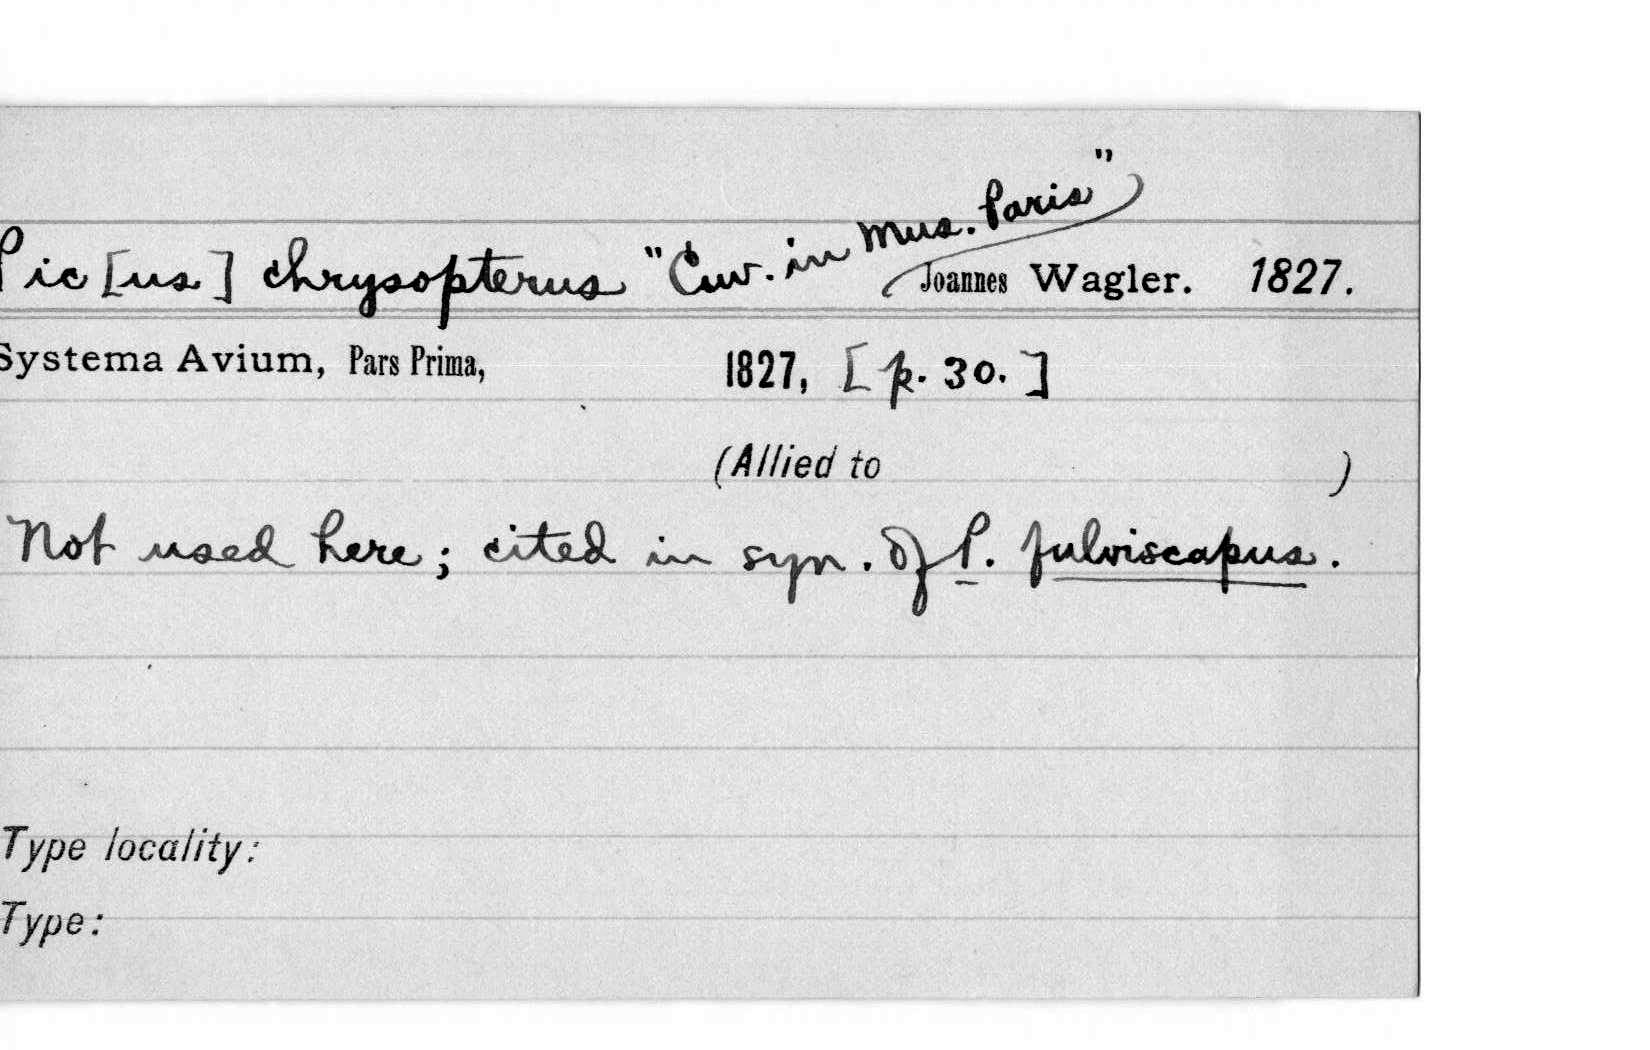 Pic[us] chrysopterus "Cuv. in Mus. Paris" Joannes Wagler. 1827.
Systema Avium, Pars Prima, 1827, [p. 30.]
(Allied to )
Not used here; cited in syn. of P. fulviscapus.
Type locality:
Type: